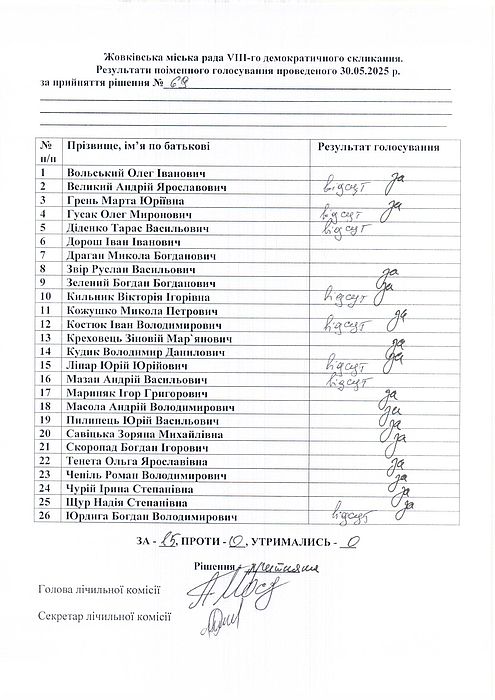 Жовківська міська рада VIII-го демократичного скликання.
Результати поіменного голосування проведеного 30.05.2025 р.
за прийняття рішення № 69
№ п/п Прізвище, ім’я по батькові Результат голосування
1 Вольський Олег Іванович за
2 Великий Андрій Ярославович відсут
3 Грень Марта Юріївна за
4 Гусак Олег Миронович відсут
5 Діденко Тарас Васильович відсут
6 Дорош Іван Іванович
7 Драган Микола Богданович
8 Звір Руслан Васильович за
9 Зелений Богдан Богданович за
10 Кильник Вікторія Ігорівна відсут
11 Кожушко Микола Петрович за
12 Костюк Іван Володимирович відсут
13 Креховець Зіновій Мар`янович за
14 Кудик Володимир Данилович за
15 Ліпар Юрій Юрійович відсут
16 Мазан Андрій Васильович відсут
17 Мариняк Ігор Григорович за
18 Масола Андрій Володимирович за
19 Пилипець Юрій Васильович за
20 Савіцька Зоряна Михайлівна за
21 Скоропад Богдан Ігорович
22 Тенета Ольга Ярославівна за
23 Чепіль Роман Володимирович за
24 Чурій Ірина Степанівна за
25 Щур Надія Степанівна за
26 Юрдига Богдан Володимирович відсут
ЗА - 15, ПРОТИ - 0, УТРИМАЛИСЬ - 0
Рішення прийняте
Голова лічильної комісії
Секретар лічильної комісії